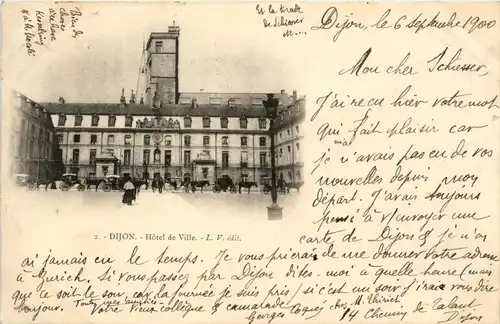 Bien des
choses
Et la
Dijon, le 6 Septembre 1900
Mon cher Schiesser,
J'ai reçu hier votre mot
qui m'a fait plaisir car
je n'avais pas eu de vos
nouvelles depuis mon
départ. J'avais toujours
pensé à vous envoyer une
carte de Dijon & je n'
2. - DIJON. - Hôtel de Ville. - L. V. édit.
ai jamais eu le temps. Je vous prierais de me donner votre adresse
à Zurich. Si vous passez par Dijon dites-moi à quelle heure (mais
que ce soit le soir, car la journée je suis pris) si c'est un soir j'irais vous dire
bonjour. Toutes mes amitiés
Votre vieux collègue & camarade
Georges chez M. Thirich
14 Chemin de Talant
Dijon